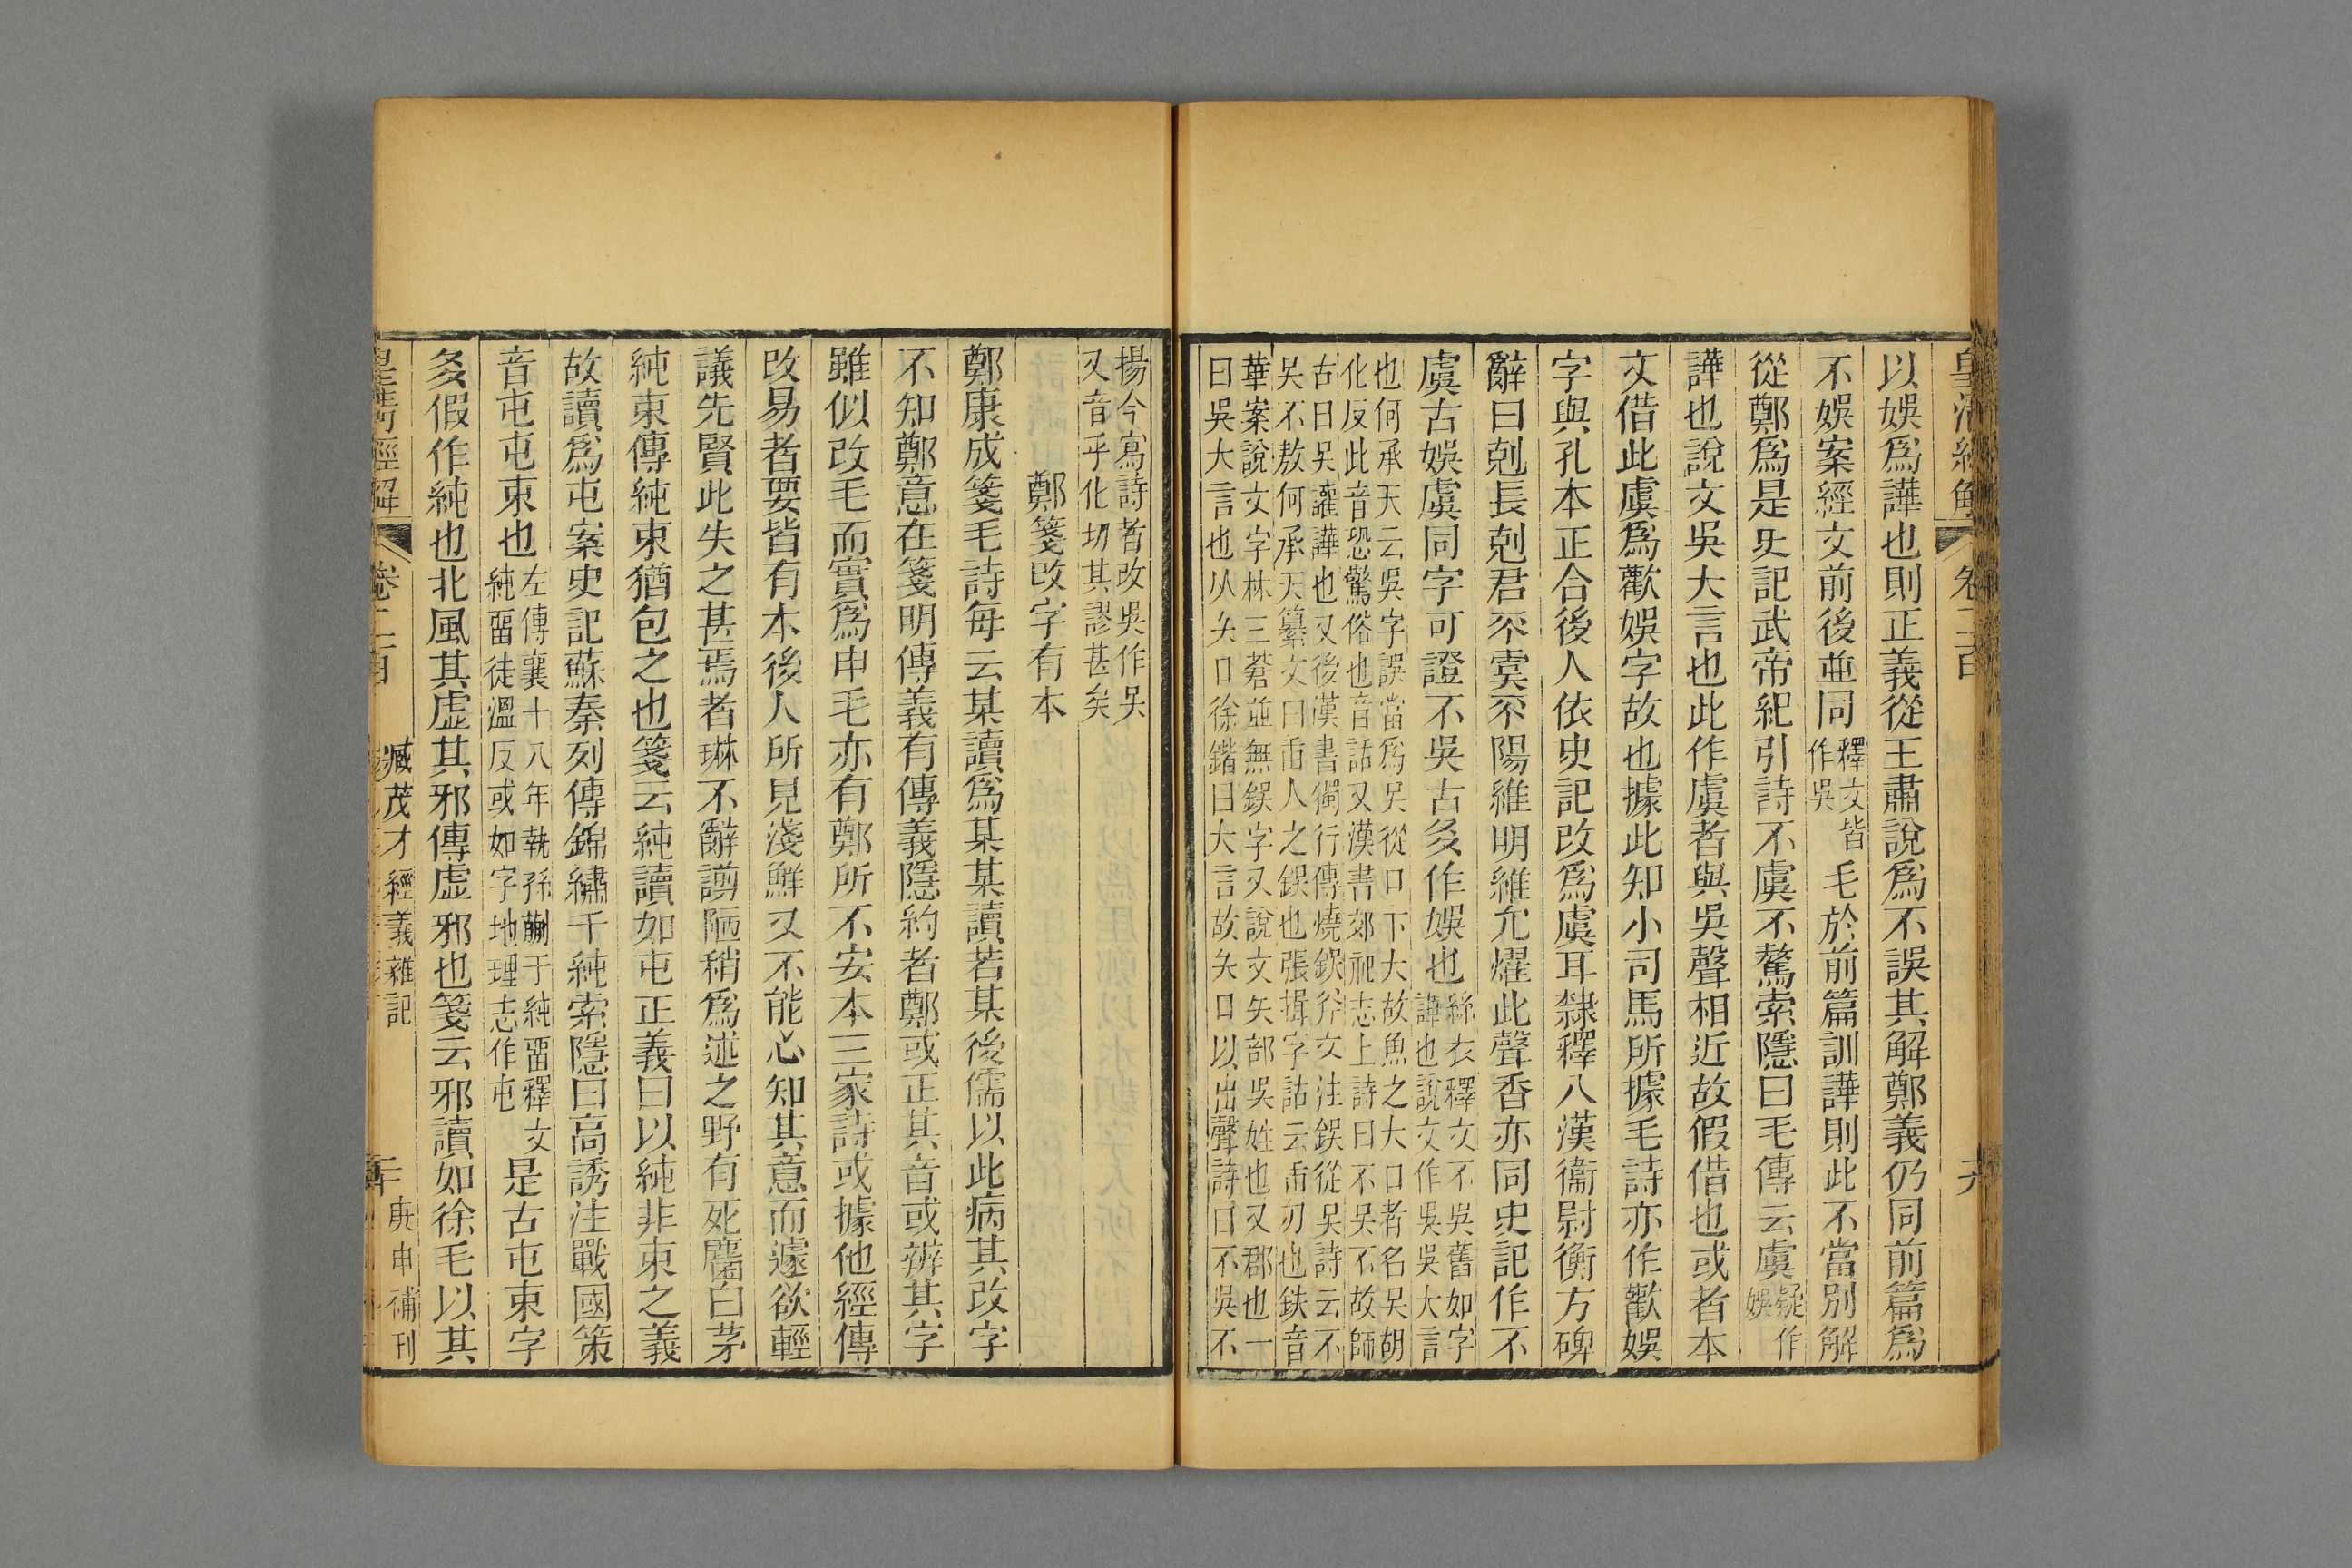 皇清經解
卷二百
以娛爲譁也則正義從王肅說爲不誤其解鄭義仍同前篇爲
不娛案經文前後並同釋文皆作吳毛於前篇訓譁則此不當別解
從鄭爲是史記武帝紀引詩不虞不驁索隱曰毛傳云虞疑作娛
譁也說文吳大言也此作虞者與吳聲相近故假借也或者本
文借此虞爲歡娛字故也據此知小司馬所據毛詩亦作歡娛
字與孔本正合後人依史記改爲虞耳隸釋八漢衞尉衡方碑
辭曰剋長剋君不虞不陽維明維允燿此聲香亦同史記作不
虞古娛虞同字可證不吳古多作娛也絲衣釋文不吳舊如字譁也說文作吳吳大言
也何承天云吳字誤當爲㕦從口下大故魚之大口者名㕦胡
化反此音恐驚俗也音話又漢書郊祀志上詩曰不吳不敖師
古曰㕦讙譁也又後漢書獨行傳燒鋘斧文注鋘從㕦詩云不
㕦不敖何承天纂文曰臿人之鋘也張揖字詁云臿刃也鋘音
華案說文字林三蒼並無鋘字又說文矢部吳姓也又郡也一
曰吳大言也从夨口徐鍇曰大言故夨口以出聲詩曰不吳不
揚今寫詩者改吳作㕦
又音乎化切其謬甚矣
鄭箋改字有本
鄭康成箋毛詩每云某讀爲某某讀若某後儒以此病其改字
不知鄭意在箋明傳義有傳義隱約者鄭或正其音或辨其字
雖似改毛而實爲申毛亦有鄭所不安本三家詩或據他經傳
改易者要皆有本後人所見淺鮮又不能心知其意而遽欲輕
議先賢此失之甚焉者琳不辭謭陋稍爲述之野有死麕白茅
純束傳純束猶包之也箋云純讀如屯正義曰以純非束之義
故讀爲屯案史記蘇秦列傳錦繡千純索隱曰高誘注戰國策
音屯屯束也左傳襄十八年執孫蒯于純畱釋文純畱徒溫反或如字地理志作屯是古屯束字
多假作純也北風其虛其邪傳虛邪也箋云邪讀如徐毛以其
卷二百
臧茂才經義雜記
庚申補刊